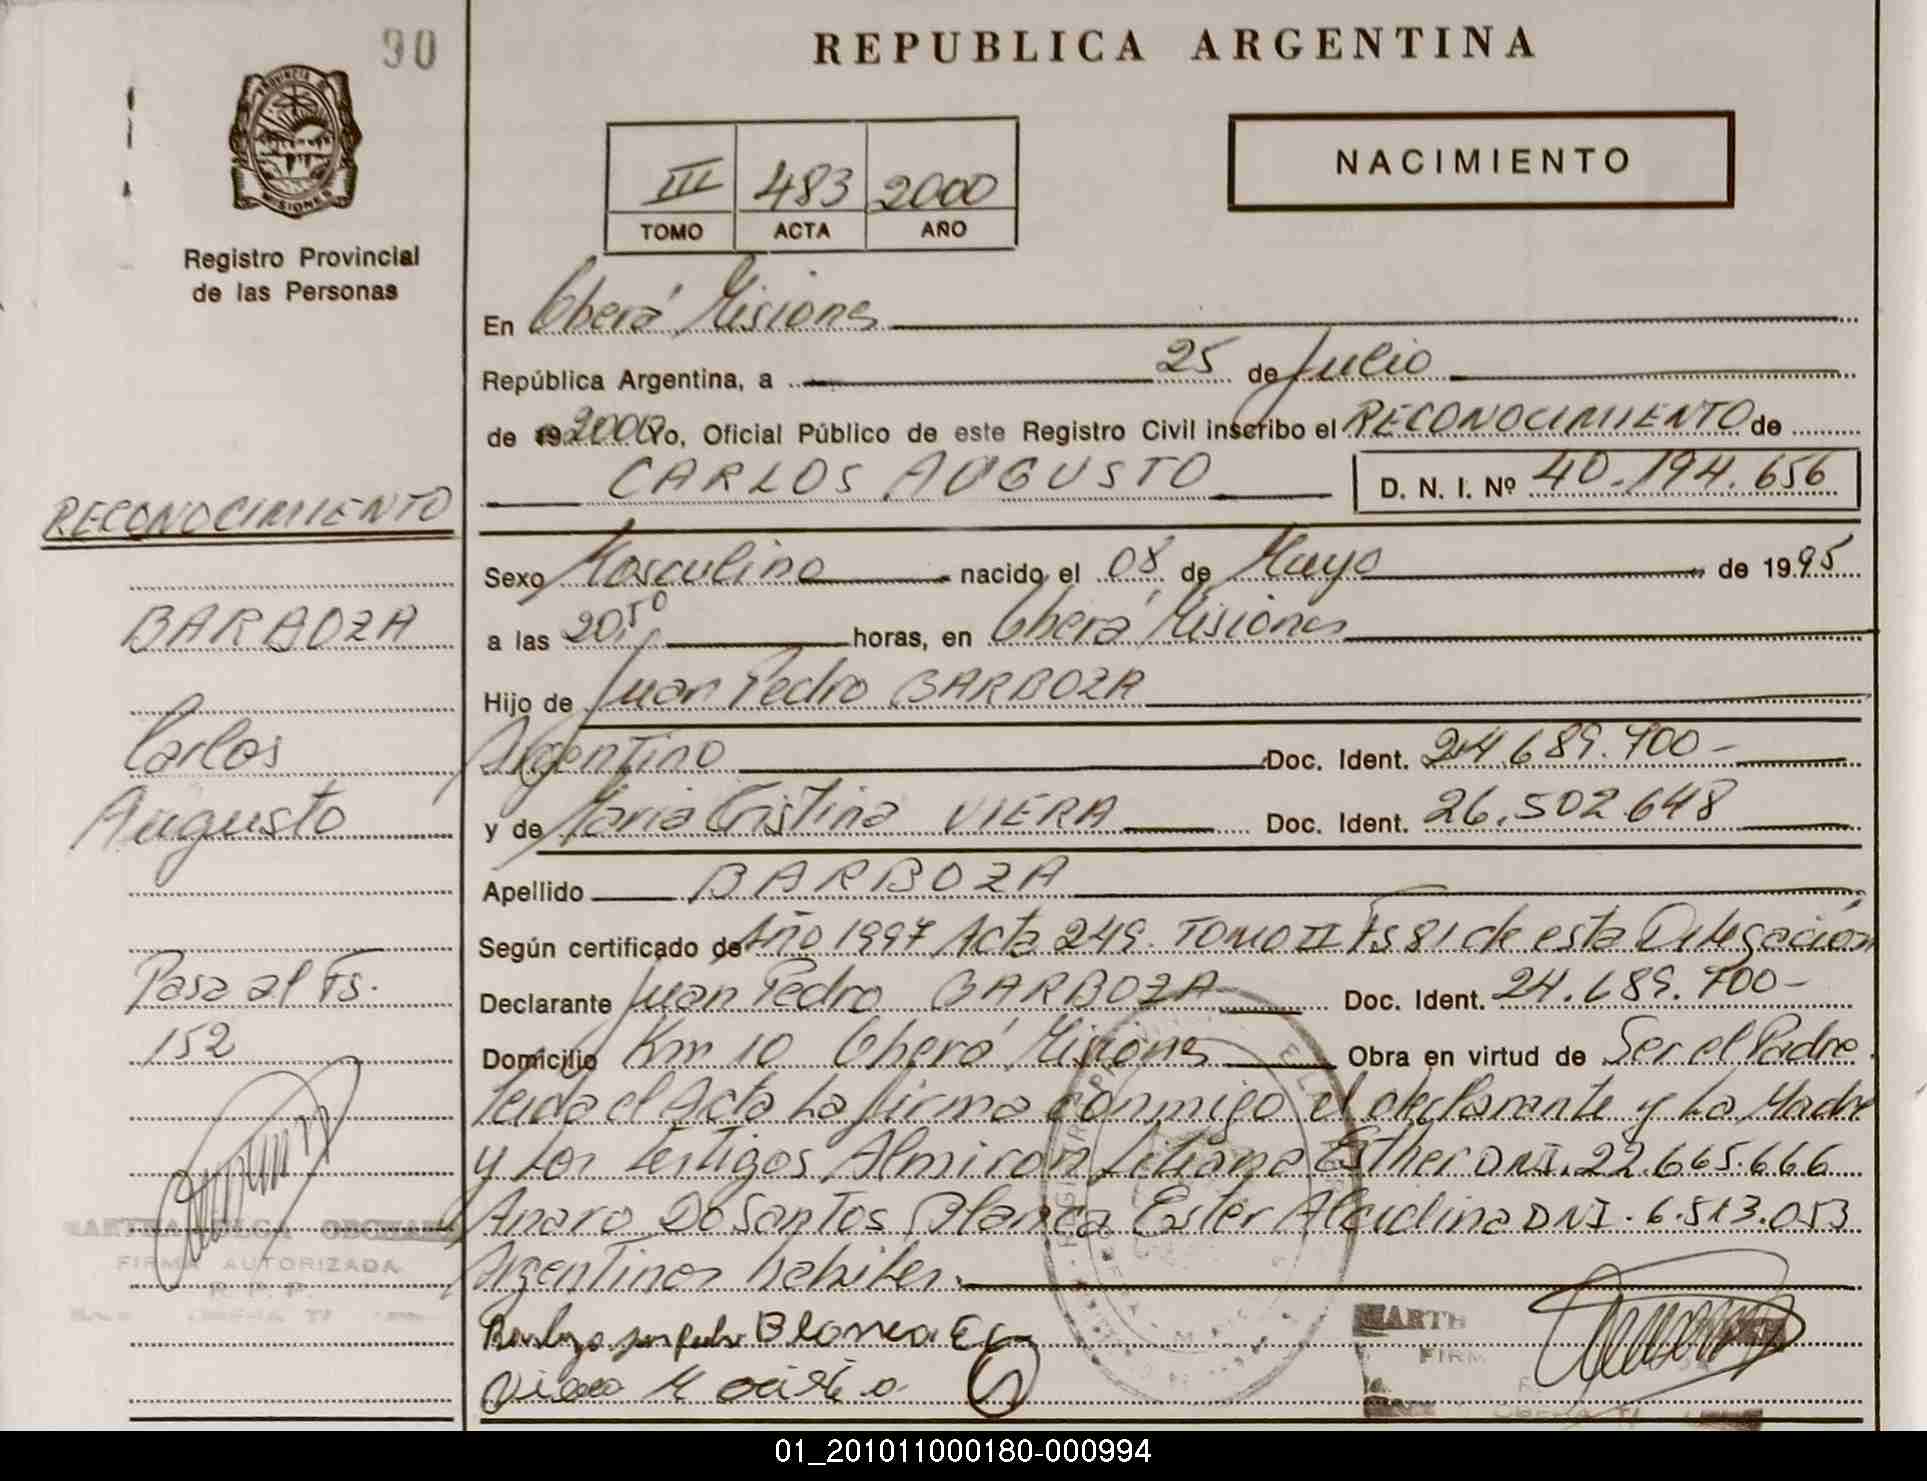 90
REPUBLICA ARGENTINA
PROVINCIA DE
MISIONES
Registro Provincial
de las Personas
III 483 2000
TOMO ACTA AÑO
NACIMIENTO
En Oberá Misiones
República Argentina, a 25 de Julio
de 19 2000 Yo, Oficial Público de este Registro Civil inscribo el RECONOCIMIENTO de
CARLOS AUGUSTO D. N. I. Nº 40.194.656
RECONOCIMIENTO
BARBOZA
Carlos
Augusto
Pasa al Fs.
152
Sexo Masculino nacido el 08 de Mayo de 1995
a las 20,50 horas, en Oberá Misiones
Hijo de Juan Pedro BARBOZA
Argentino Doc. Ident. 24.689.700-
y de Maria Cristina VIERA Doc. Ident. 26.502.648
Apellido BARBOZA
Según certificado de Año 1997 Acta 249. TOMO II Fs 81 de esta Delegación
Declarante Juan Pedro BARBOZA Doc. Ident. 24.689.700-
Domicilio Km 10 Oberá Misiones Obra en virtud de Ser el Padre.
Leida el Acta La firma conmigo el declarante y La Madre
y Los testigos Almiron Liliana Esther DNI. 22.665.666
Amaro Do Santos Blanca Ester Alcidina DNI. 6.513.053
Argentinos habiles.
Barboza juan pedro Blanca E
FIRMA AUTORIZADA
R. P. P.
MARTH
FIRM
01_201011000180-000994